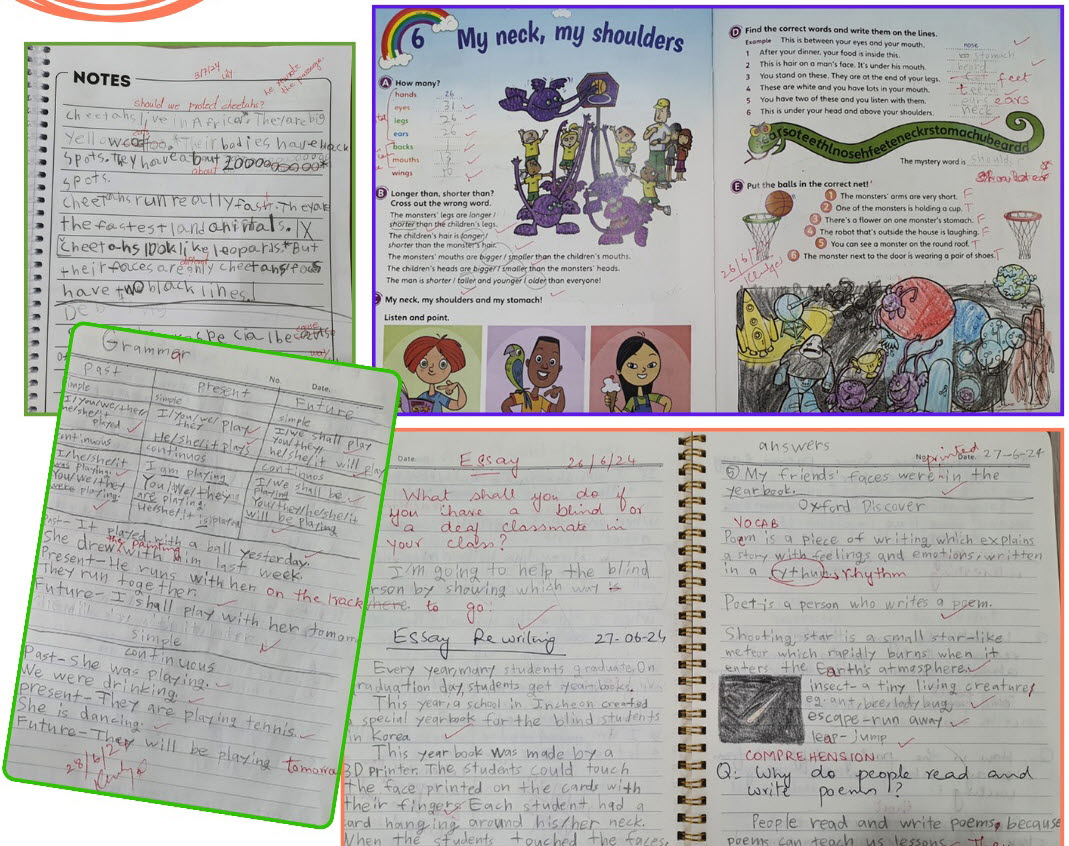 NOTES
3/7/24
should we protect cheetahs?
Cheetahs live in Africa. They are big
yellow cats too. Their bodies have back
spots. They have about 2000
about
spots.
cheetahs run really fast. They are
the fastest land animals.
Cheetahs look like leopards. But
their faces are only cheetahs faces
have two black lines.
Grammar
No.
Date.
Past
Present
Future
simple
simple
simple
I/you/we/they
he/she/it
played
I/You/we/ play
they
He/she/it plays
I/we shall play
You/they/
he/she/it will play
continuous
continuos
continuos
I/he/she/it
was playing.
You/we/they
were playing.
I am playing
You/We/they
are playing.
He/she/it is playing
I/we shall be
playing
You/they/he/she/it
will be playing
Past- It played with a ball yesterday.
the painting
She drew with him last week.
Present-He runs with her on the track
They run together.
Future- I shall play with her tomorr
simple
continuous
Past-She was playing.
We were drinking.
present-They are playing tennis.
She is dancing.
Future-They will be playing tomorrow
28/6/24
6 My neck, my shoulders
A How many?
hands 26
eyes 31
legs 26
ears 26
backs
mouths
wings
B Longer than, shorter than?
Cross out the wrong word.
The monsters' legs are longer /
shorter than the children's legs.
The children's hair is longer/
shorter than the monster's hair.
The monsters' mouths are bigger / smaller than the children's mouths.
The children's heads are bigger / smaller than the monsters' heads.
The man is shorter / taller and younger / older than everyone!
My neck, my shoulders and my stomach!
Listen and point.
D Find the correct words and write them on the lines.
Example This is between your eyes and your mouth. nose
1 After your dinner, your food is inside this. stomach
2 This is hair on a man's face. It's under his mouth. beard
3 You stand on these. They are at the end of your legs. feet
4 These are white and you have lots in your mouth. teeth
5 You have two of these and you listen with them. ears
6 This is under your head and above your shoulders. neck
earsoteethlnosehfeeteneckrstomachubeardd
The mystery word is shoulder
E Put the balls in the correct net!
1 The monsters' arms are very short. F
2 One of the monsters is holding a cup. T
3 There's a flower on one monster's stomach. F
4 The robot that's outside the house is laughing. F
5 You can see a monster on the round roof. T
6 The monster next to the door is wearing a pair of shoes. T
Date.
Essay 26/6/24
What shall you do if
you have a blind or
a deaf classmate in
your class?
I'm going to help the blind
rson by showing which way
here. to go.
Essay Rewriting 27-06-24
Every year, many students graduate. On
raduation day, students get yearbooks.
This year, a school in Incheon created
special yearbook for the blind students
in Korea
This year book was made by a
3D printer. The students could touch
the face printed on the cards with
their fingers. Each student had a
ard hanging around his/her neck.
When the students touched the faces,
answers
No.
Date. 27-6-24
printed
⑤ My friends' faces were in the
yearbook.
Oxford Discover
VOCAB
Poem is a piece of writing which explains
a story with feelings and emotions, written
in a rythum rhythm
Poet-is a person who writes a poem.
Shooting star is a small star-like
meteor which rapidly burns when it
enters the Earth's atmosphere.
insect- a tiny living creature,
eg:ant, bee, lady bug.
escape-run away
leap-jump
COMPREHENSION
Q: Why do people read and
write poems?
People read and write poems, because
poems can teach us lessons.